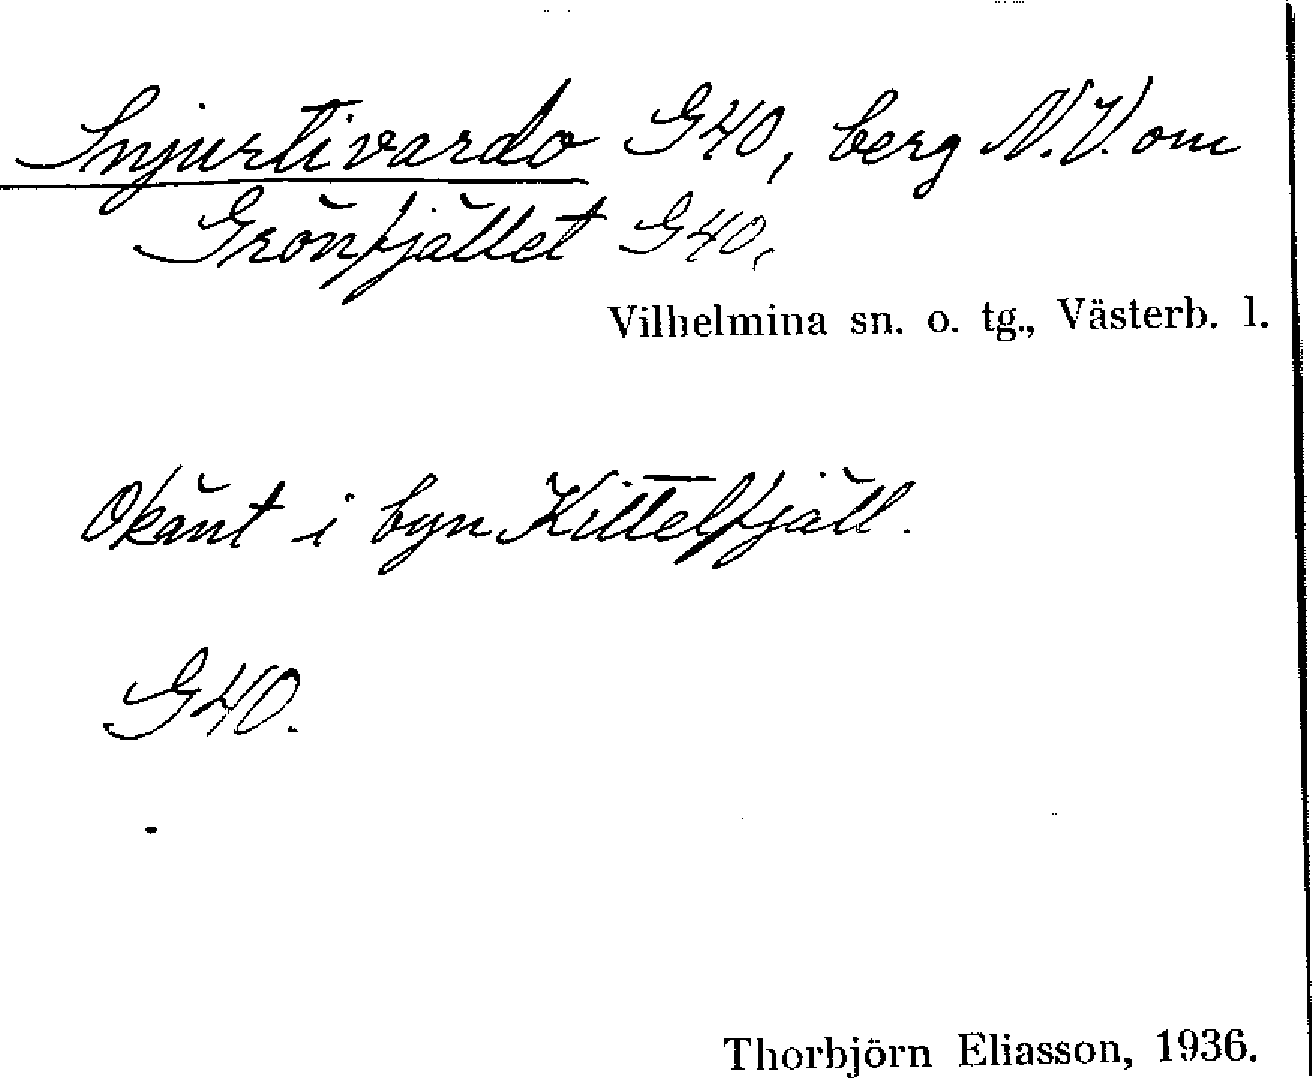 Snjurtivardo G40, berg N.V. om
Grönfjället G40,
Vilhelmina sn. o. tg., Västerb. l.
Okänt i byn Kittelfjäll.
G40.
Thorbjörn Eliasson, 1936.